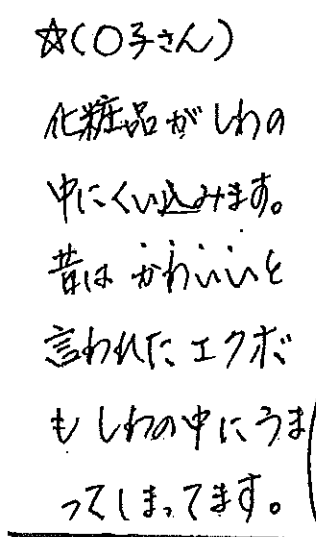 ☆(○子さん)
化粧品がしわの
中にくい込みます。
昔はかわいいと
言われたエクボ
もしわの中にうま
ってしまってます。